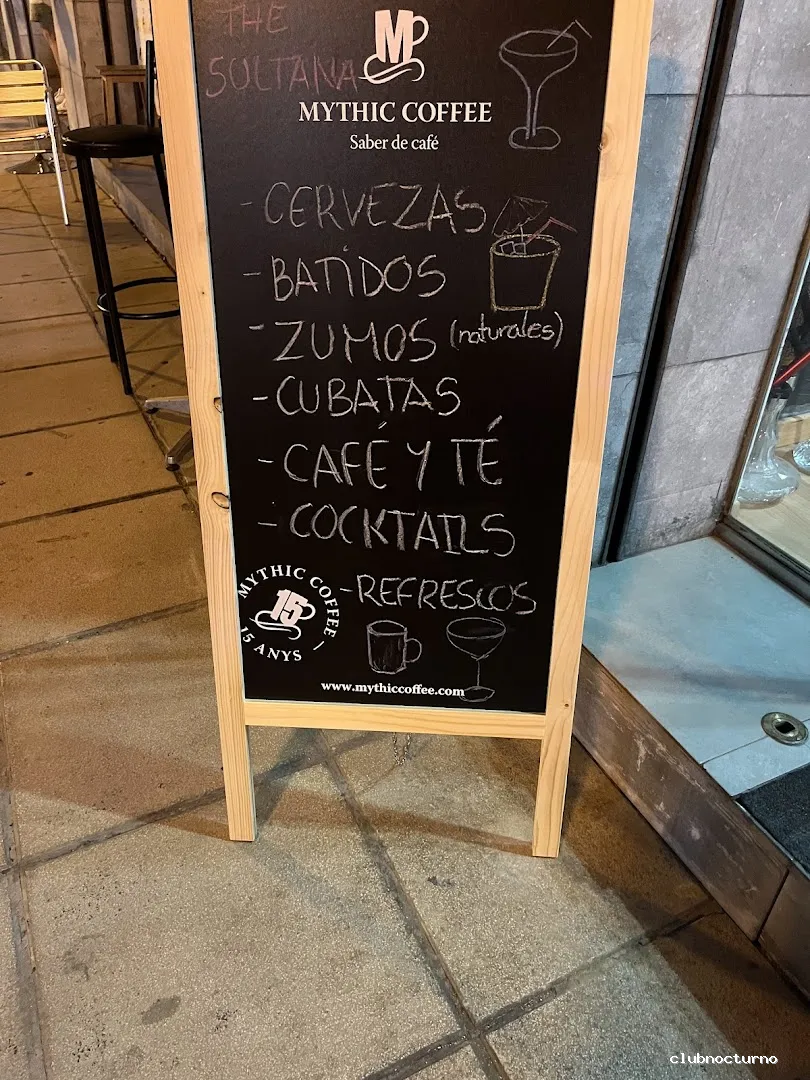 THE
SULTANA
M
MYTHIC COFFEE
Saber de café
- CERVEZAS
- BATIDOS
- ZUMOS (naturales)
- CUBATAS
- CAFÉ Y TÉ
- COCKTAILS
- REFRESCOS
MYTHIC COFFEE
15
15 ANYS
www.mythiccoffee.com
clubnocturno